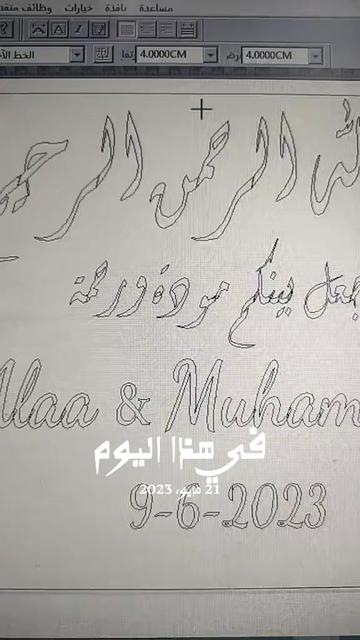 مساعدة نافذة خيارات وظائف متقد
الخط الأ 4.0000CM رتفا 4.0000CM رض
الله الرحمن الرحيم
جعل بينكم مودة ورحمة
Alaa & Muham
في هذا اليوم
21 مايو، 2023
9-6-2023